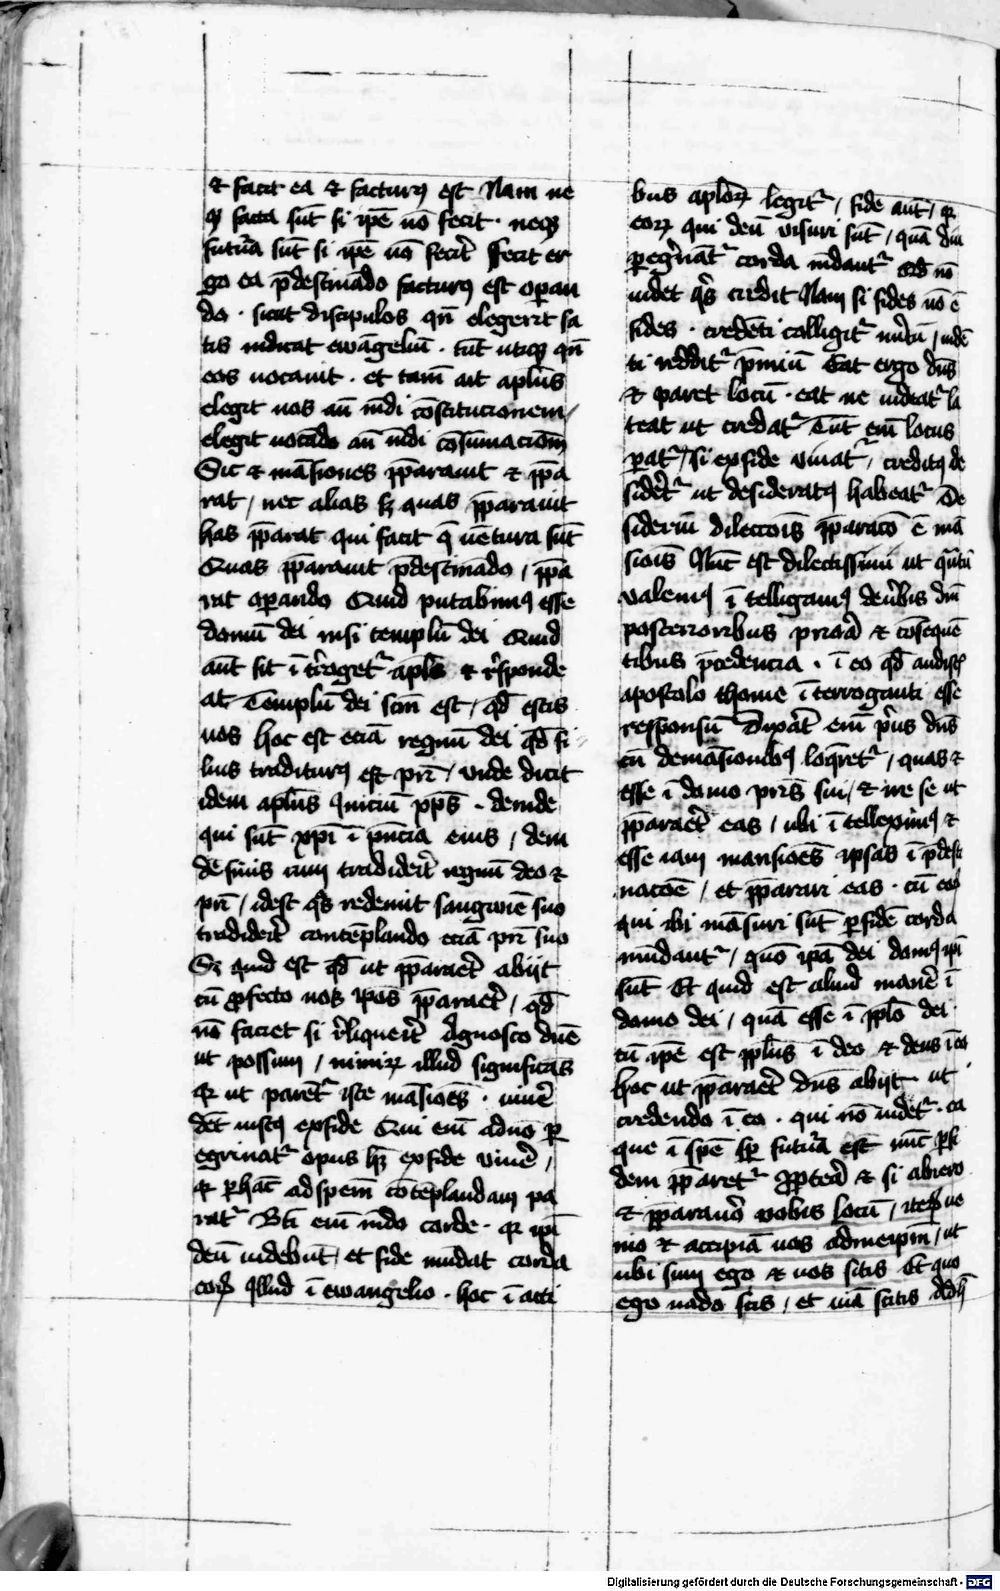 et facit ea et facturꝰ est Nam ne
qꝫ facta sūt si ip̄e nō fecit · neqꝫ
futur̄a sūt si ip̄e nō fecer̄t ffecit er
go ea p̄destinādo facturꝰ est oꝑan
do · sicut discipulos qn̄ elegerit sa
tis indicat ewāgeliū · tūc utiqꝫ qn̄
eos uocauit · et tam̄ ait aplūs
elegit nos an̄ mūdi cōstitucionem /
elegit uocādo an̄ mūdi cōsūmaciōm
Sic et māsiones p̄parauit et p̄pa
rat / nec alias sꝫ quas p̄parauit
has p̄parat qui facit q̄ uētura sūt
Quas p̄parauit p̄destinādo / p̄pa
rat oꝑando Quid putabimꝰ esse
domū dei nisi templū dei Quid
aūt sit īt̄roget᷑ aplūs et r̄sponde
at Templū dei scm̄ est / qd̄ estis
uos hoc est eciā regnū dei qd̄ fi
lius traditurꝰ est pr̄i / vnde dicit
idem aplūs Iniciū xp̄s · deinde
qui sūt xp̄i ī pn̄cia eius / dein
de finis cum tradiderīt regnū deo et
pr̄i / idest q̄s redemit sangwiē suo
tradiderīt contēplando eciā pr̄i suo
Si quid est qd̄ ut p̄parar̄et abijt
cū ꝓfecto nos ip̄os p̄parar̄et / qd̄
nō faciet si r̄liquerīt Agnosco dn̄e
ut possum / nimiꝝ illud significās
qꝛ ut parēt᷑ iste māsiōes · iuuer̄e
det iustꝰ exfide Qui em̄ adn̄o ꝑ
egrinat᷑ opus hꝫ exfide viuer̄e /
qꝛ ꝑhāc adspem̄ cōtēplandam pa
rat᷑ Bt̄i em̄ mūdo corde · qꝛ ip̄i
deū uidebūt / et fide mūdat corda
eoꝝ Illud ī ewangelio · hoc ī acti
bus aplōꝝ legit᷑ / fide aūt / qꝛ
eoꝝ qui deū visuri sūt / quā diu
ꝑegr̄nāt᷑ corda mūdant᷑ nō
uidet q̄s credit Nam si fides nō ē
fides · credēti colligit᷑ mer̄tū / uidē
ti reddit᷑ p̄miū Eat ergo dn̄s
et paret locū · eat ne uideat᷑ la
teat ut credat᷑ Tūc em̄ locus
parat᷑ / si exfide viuat᷑ / creditꝰ de
sider̄et᷑ ut desideratꝰ habeat᷑ De
sideriū dilectōis p̄paracō ē mā
siōis Nūc est dilectissimi ut qn̄tū
valemꝰ ītelligamꝰ deūbis dn̄i
posterioribus priora et cōseque
tibus p̄cedencia · ī eo qd̄ audistꝰ
apostolo thome īterroganti esse
responsū Dixat̄ em̄ p̄us dn̄s
cū demāsionibꝰ loqr̄et᷑ / quas et
esse ī domo pr̄is sui / et ire se ut
p̄parar̄et eas / ubi ītelleximꝰ et
esse iam mansiōes ip̄as ī p̄desti
nacōe / et p̄parari eas · cū eoꝝ
qui ibi māsuri sūt ꝑ fidē corda
mūdant᷑ / quō ip̄a dei domꝰ ip̄i
sūt Et quid est aliud maner̄e ī
domo dei / quā esse ī pplō dei ·
cū ip̄e est pplūs ī deo et deus ī eo
hoc ut p̄parar̄et dn̄s abijt ut
credendo ī eo · qui nō uidet᷑ · ea
que ī spē sꝑ futur̄a est nūc ꝑ fi
dem p̄paret᷑ ꝓpter̄a et si abiero
et p̄parauer̄o vobis locū / iteꝝ ve
nio et accipiā uos admeip̄m / ut
ubi sum ego et uos sitis Et quo
ego uado scis / et viā scitis